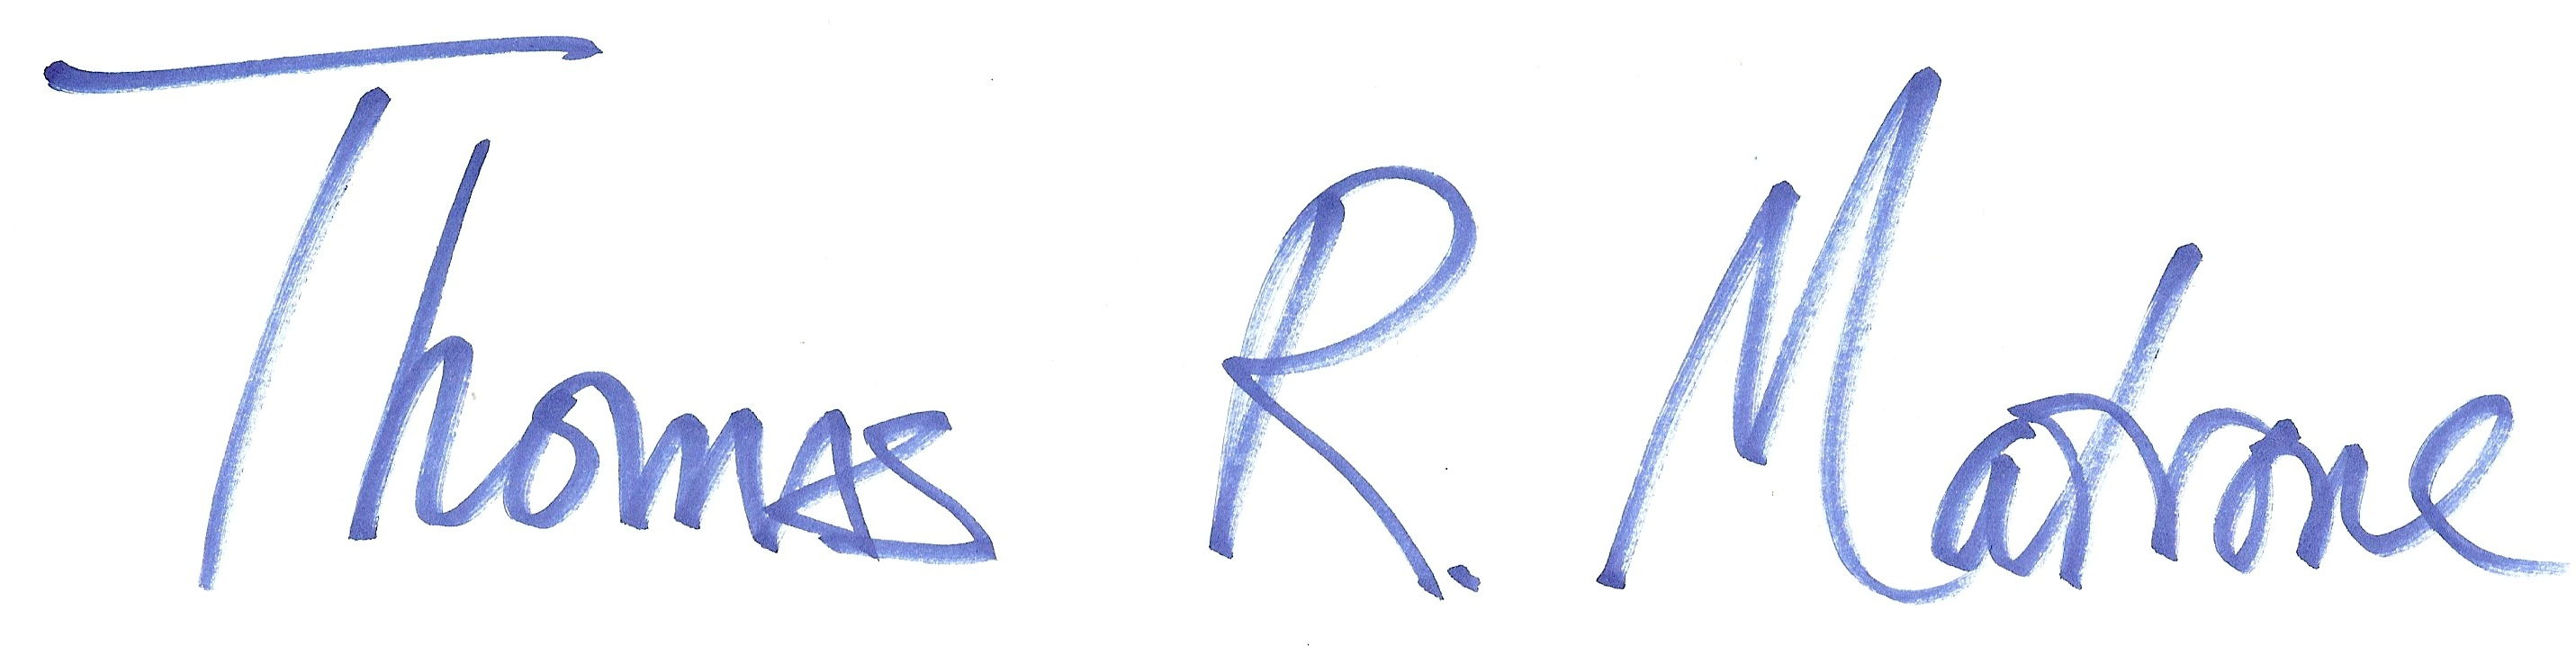 Thomas R. Matrone